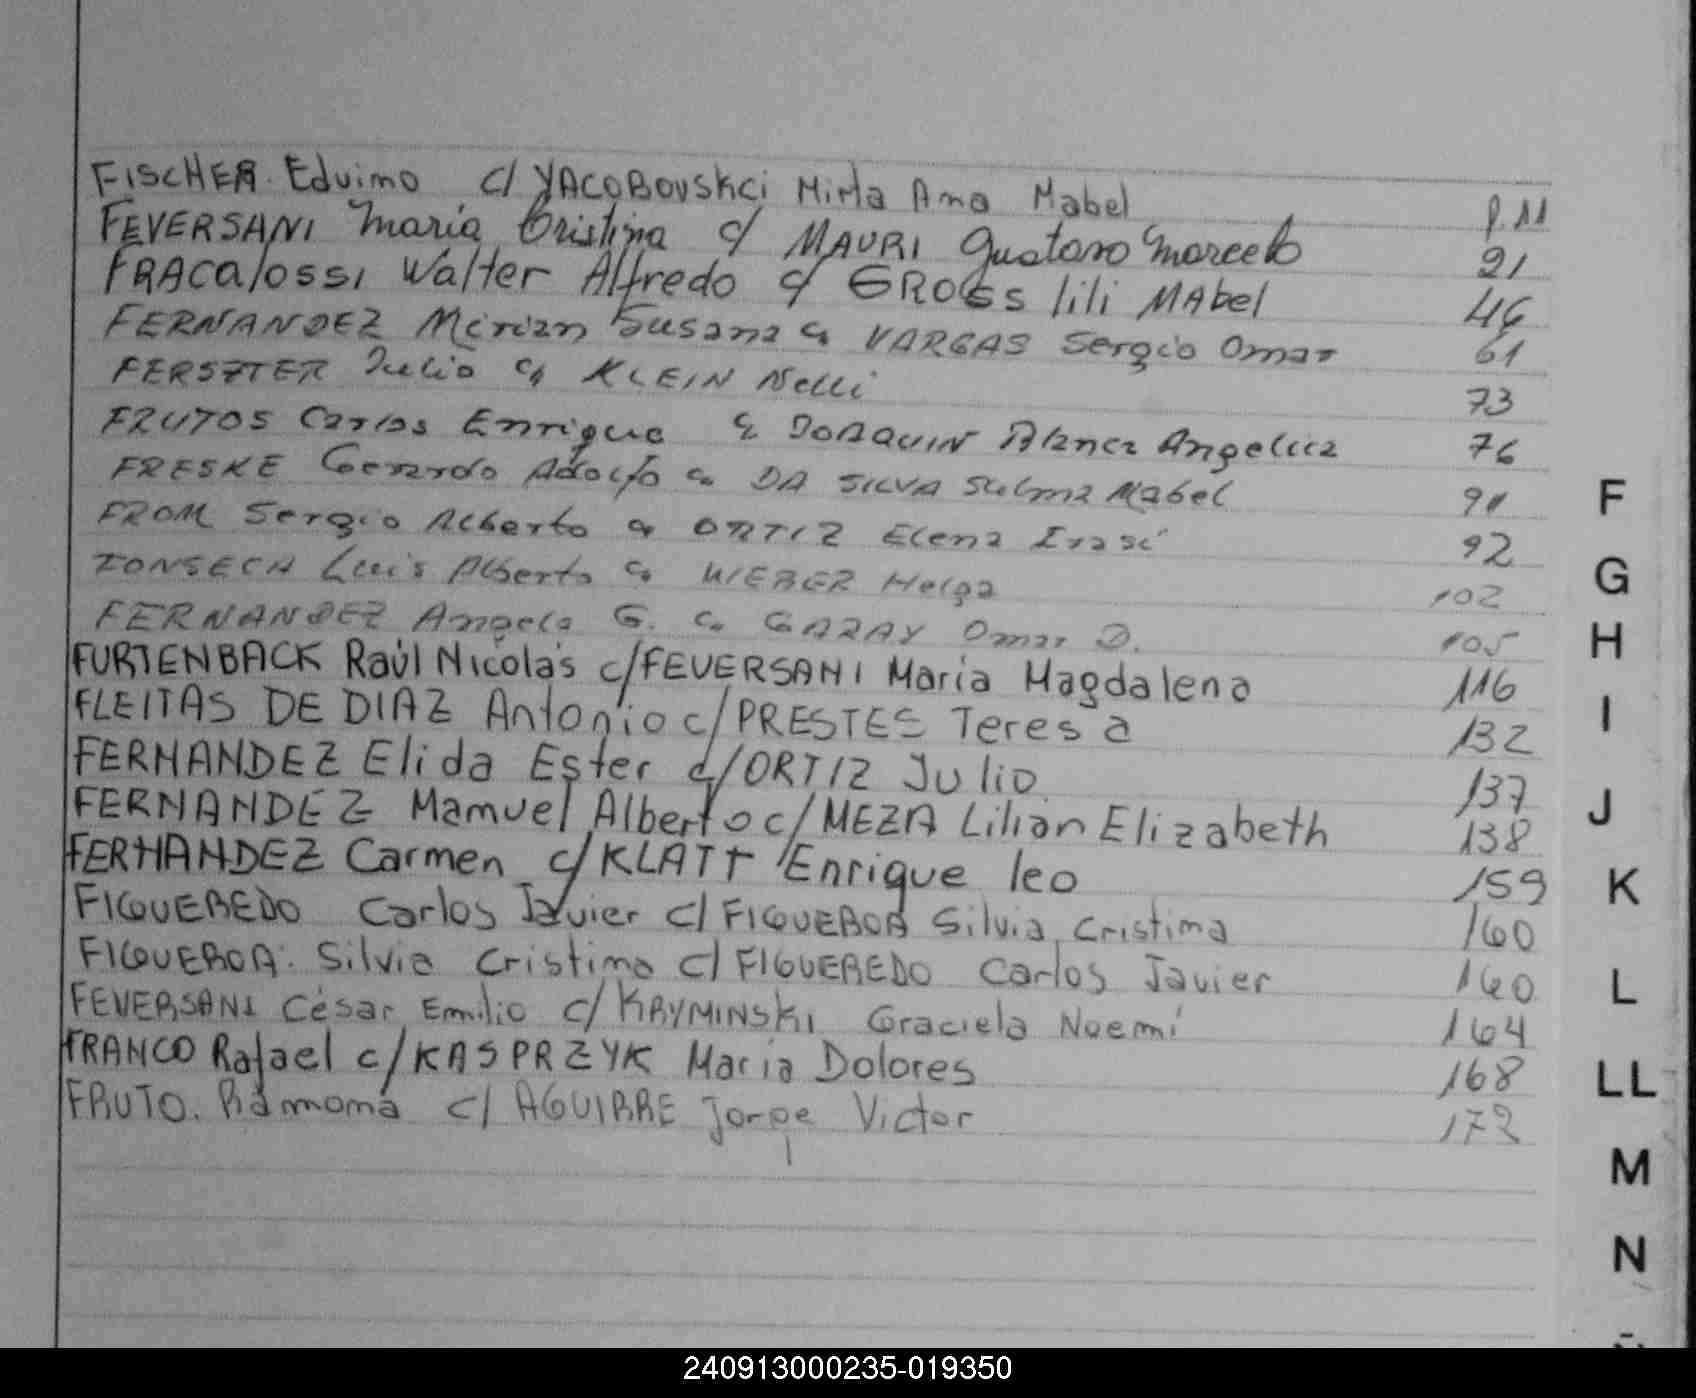 FISCHER. Eduimo c/ YACOBOVSKCI Mirta Ana Mabel P. 11
FEVERSANI María Cristina c/ MAURI Gustavo Marcelo 21
FRACalOSSI Walter Alfredo c/ GROSS lili MAbel 46
FERNANDEZ Mirian Susana c/ VARGAS Sergio Omar 61
FERSZTER Julio c/ KLEIN Nelli 73
FRUTOS Carlos Enrique c/ DOAQUIN Blanca Angelica 76
FRESKE Gerardo Adolfo c/ DA SILVA Sulma Mabel 91
FROM Sergio Alberto c/ ORTIZ Elena Irasí 92
FONSECA Luis Alberto c/ WEBER Helga 102
FERNANDEZ Angela G. c/ GARAY Omar D. 105
FURTENBACK Raúl Nicolás c/ FEVERSANI María Magdalena 116
FLEITAS DE DIAZ Antonio c/ PRESTES Teresa 132
FERNANDEZ Elida Ester c/ ORTIZ Julio 137
FERNANDEZ Manuel Alberto c/ MEZA Lilian Elizabeth 138
FERNANDEZ Carmen c/ KLATT Enrique leo 159
FIGUEREDO Carlos Javier c/ FIGUEROA Silvia Cristina 160
FIGUEROA. Silvia Cristina c/ FIGUEREDO Carlos Javier 160
FEVERSANI César Emilio c/ KRYMINSKI Graciela Noemí 164
FRANCO Rafael c/ KASPRZYK María Dolores 168
FRUTO. Ramona c/ AGUIRRE Jorge Victor 172
F
G
H
I
J
K
L
LL
M
N
240913000235-019350